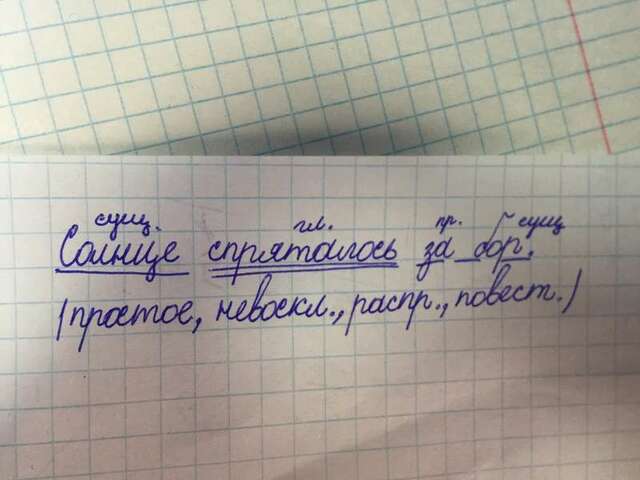 сущ. гл. пр. сущ
Солнце спряталось за бор.
(простое, невоскл., распр., повест.)